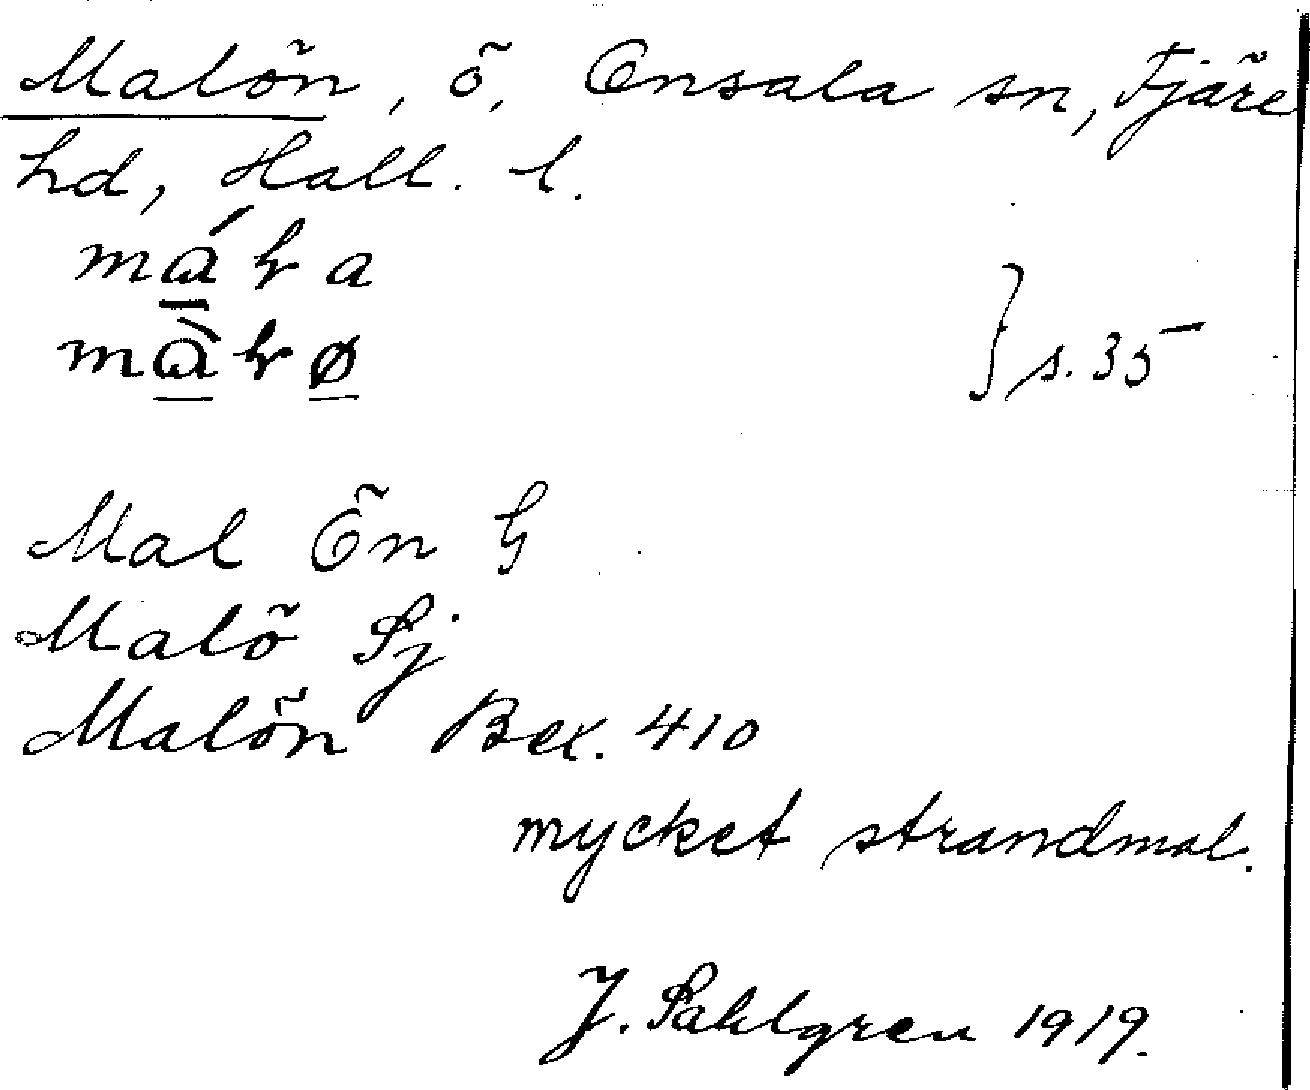 Malön, ö, Onsala sn, Fjäre
hd, Hall. l.
Mal Ön G
Malö Sj
Malön Bex. 410
mycket strandmal.
} s. 35
J. Sahlgren 1919.